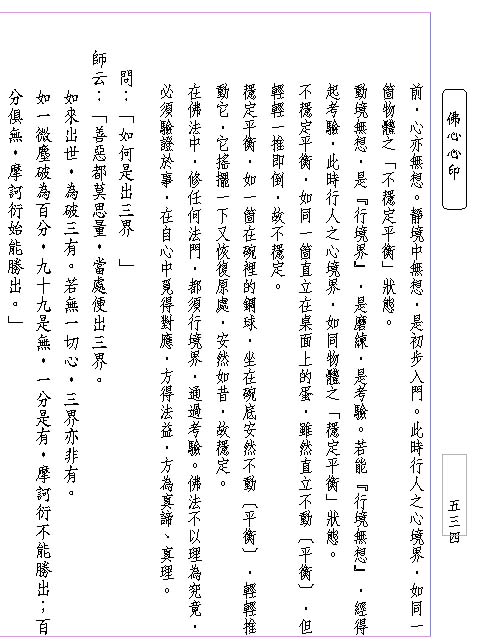 佛心心印
五三四
前，心亦無想。靜境中無想，是初步入門。此時行人之心境界，如同一
箇物體之「不穩定平衡」狀態。
動境無想，是『行境界』，是磨練，是考驗。若能『行境無想』，經得
起考驗，此時行人之心境界，如同物體之「穩定平衡」狀態。
不穩定平衡，如同一箇直立在桌面上的蛋，雖然直立不動（平衡），但
輕輕一推即倒，故不穩定。
穩定平衡，如一箇在碗裡的鋼球，坐在碗底安然不動（平衡），輕輕推
動它，它搖擺一下又恢復原處，安然如昔，故穩定。
在佛法中，修任何法門，都須行境界，通過考驗。佛法不以理為究竟，
必須驗證於事，在自心中覓得對應，方得法益，方為真諦、真理。
問：「如何是出三界　」
師云：「善惡都莫思量，當處便出三界。
如來出世，為破三有。若無一切心，三界亦非有。
如一微塵破為百分，九十九是無，一分是有，摩訶衍不能勝出；百
分俱無，摩訶衍始能勝出。」